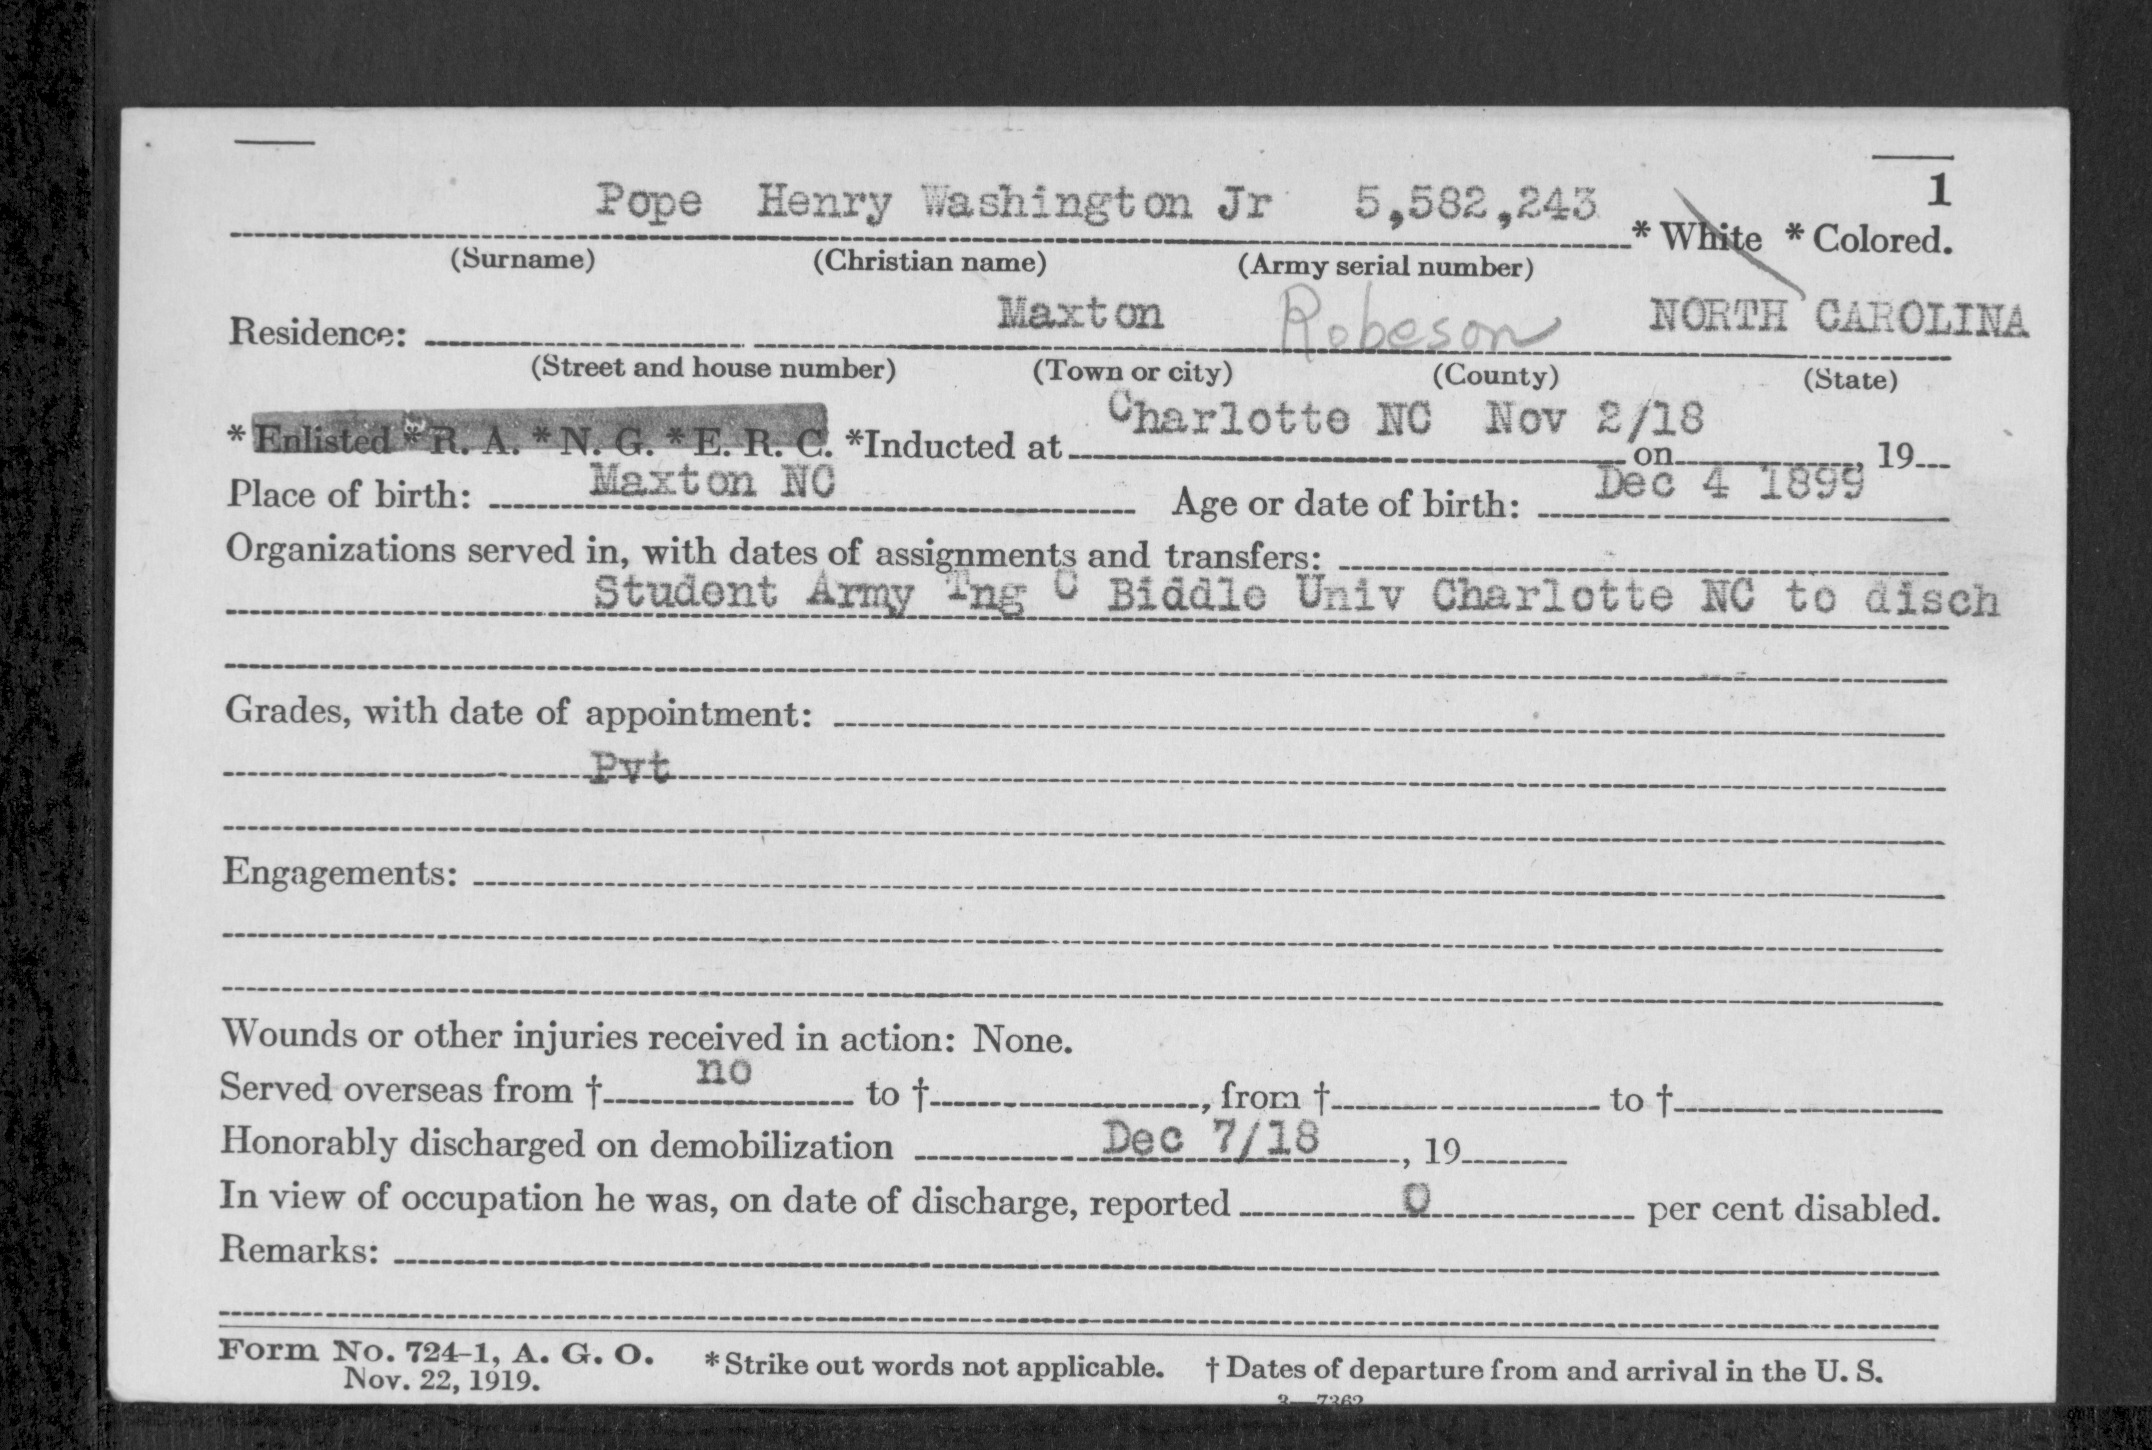 1
Pope Henry Washington Jr 5,582,243 * White * Colored.
(Surname) (Christian name) (Army serial number)
Residence: Maxton Robeson NORTH CAROLINA
(Street and house number) (Town or city) (County) (State)
* Enlisted * R. A. * N. G. * E. R. C. *Inducted at Charlotte NC Nov 2/18 on , 19
Place of birth: Maxton NC Age or date of birth: Dec 4 1899
Organizations served in, with dates of assignments and transfers:
Student Army Tng C Biddle Univ Charlotte NC to disch
Grades, with date of appointment:
Pvt
Engagements:
Wounds or other injuries received in action: None.
Served overseas from † no to † , from † to †
Honorably discharged on demobilization Dec 7/18 , 19
In view of occupation he was, on date of discharge, reported 0 per cent disabled.
Remarks:
Form No. 724-1, A. G. O. * Strike out words not applicable. † Dates of departure from and arrival in the U. S.
Nov. 22, 1919.
3—7362